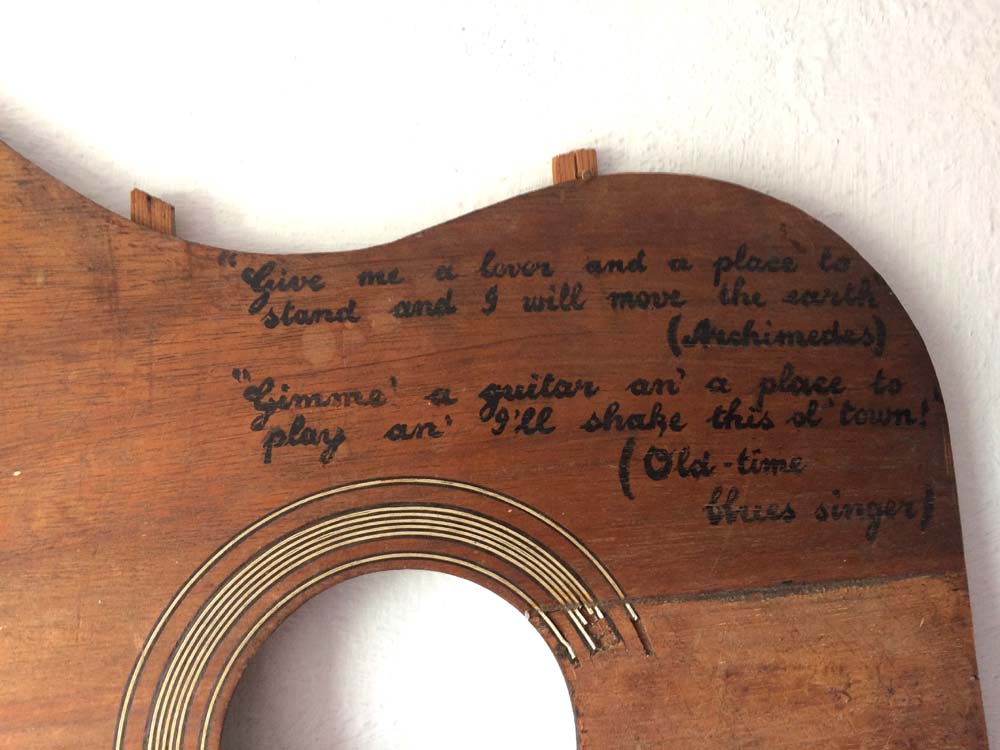 "Give me a lever and a place to
stand and I will move the earth"
(Archimedes)
"Gimme' a guitar an' a place to
play an' I'll shake this ol' town!"
(Old-time
blues singer)